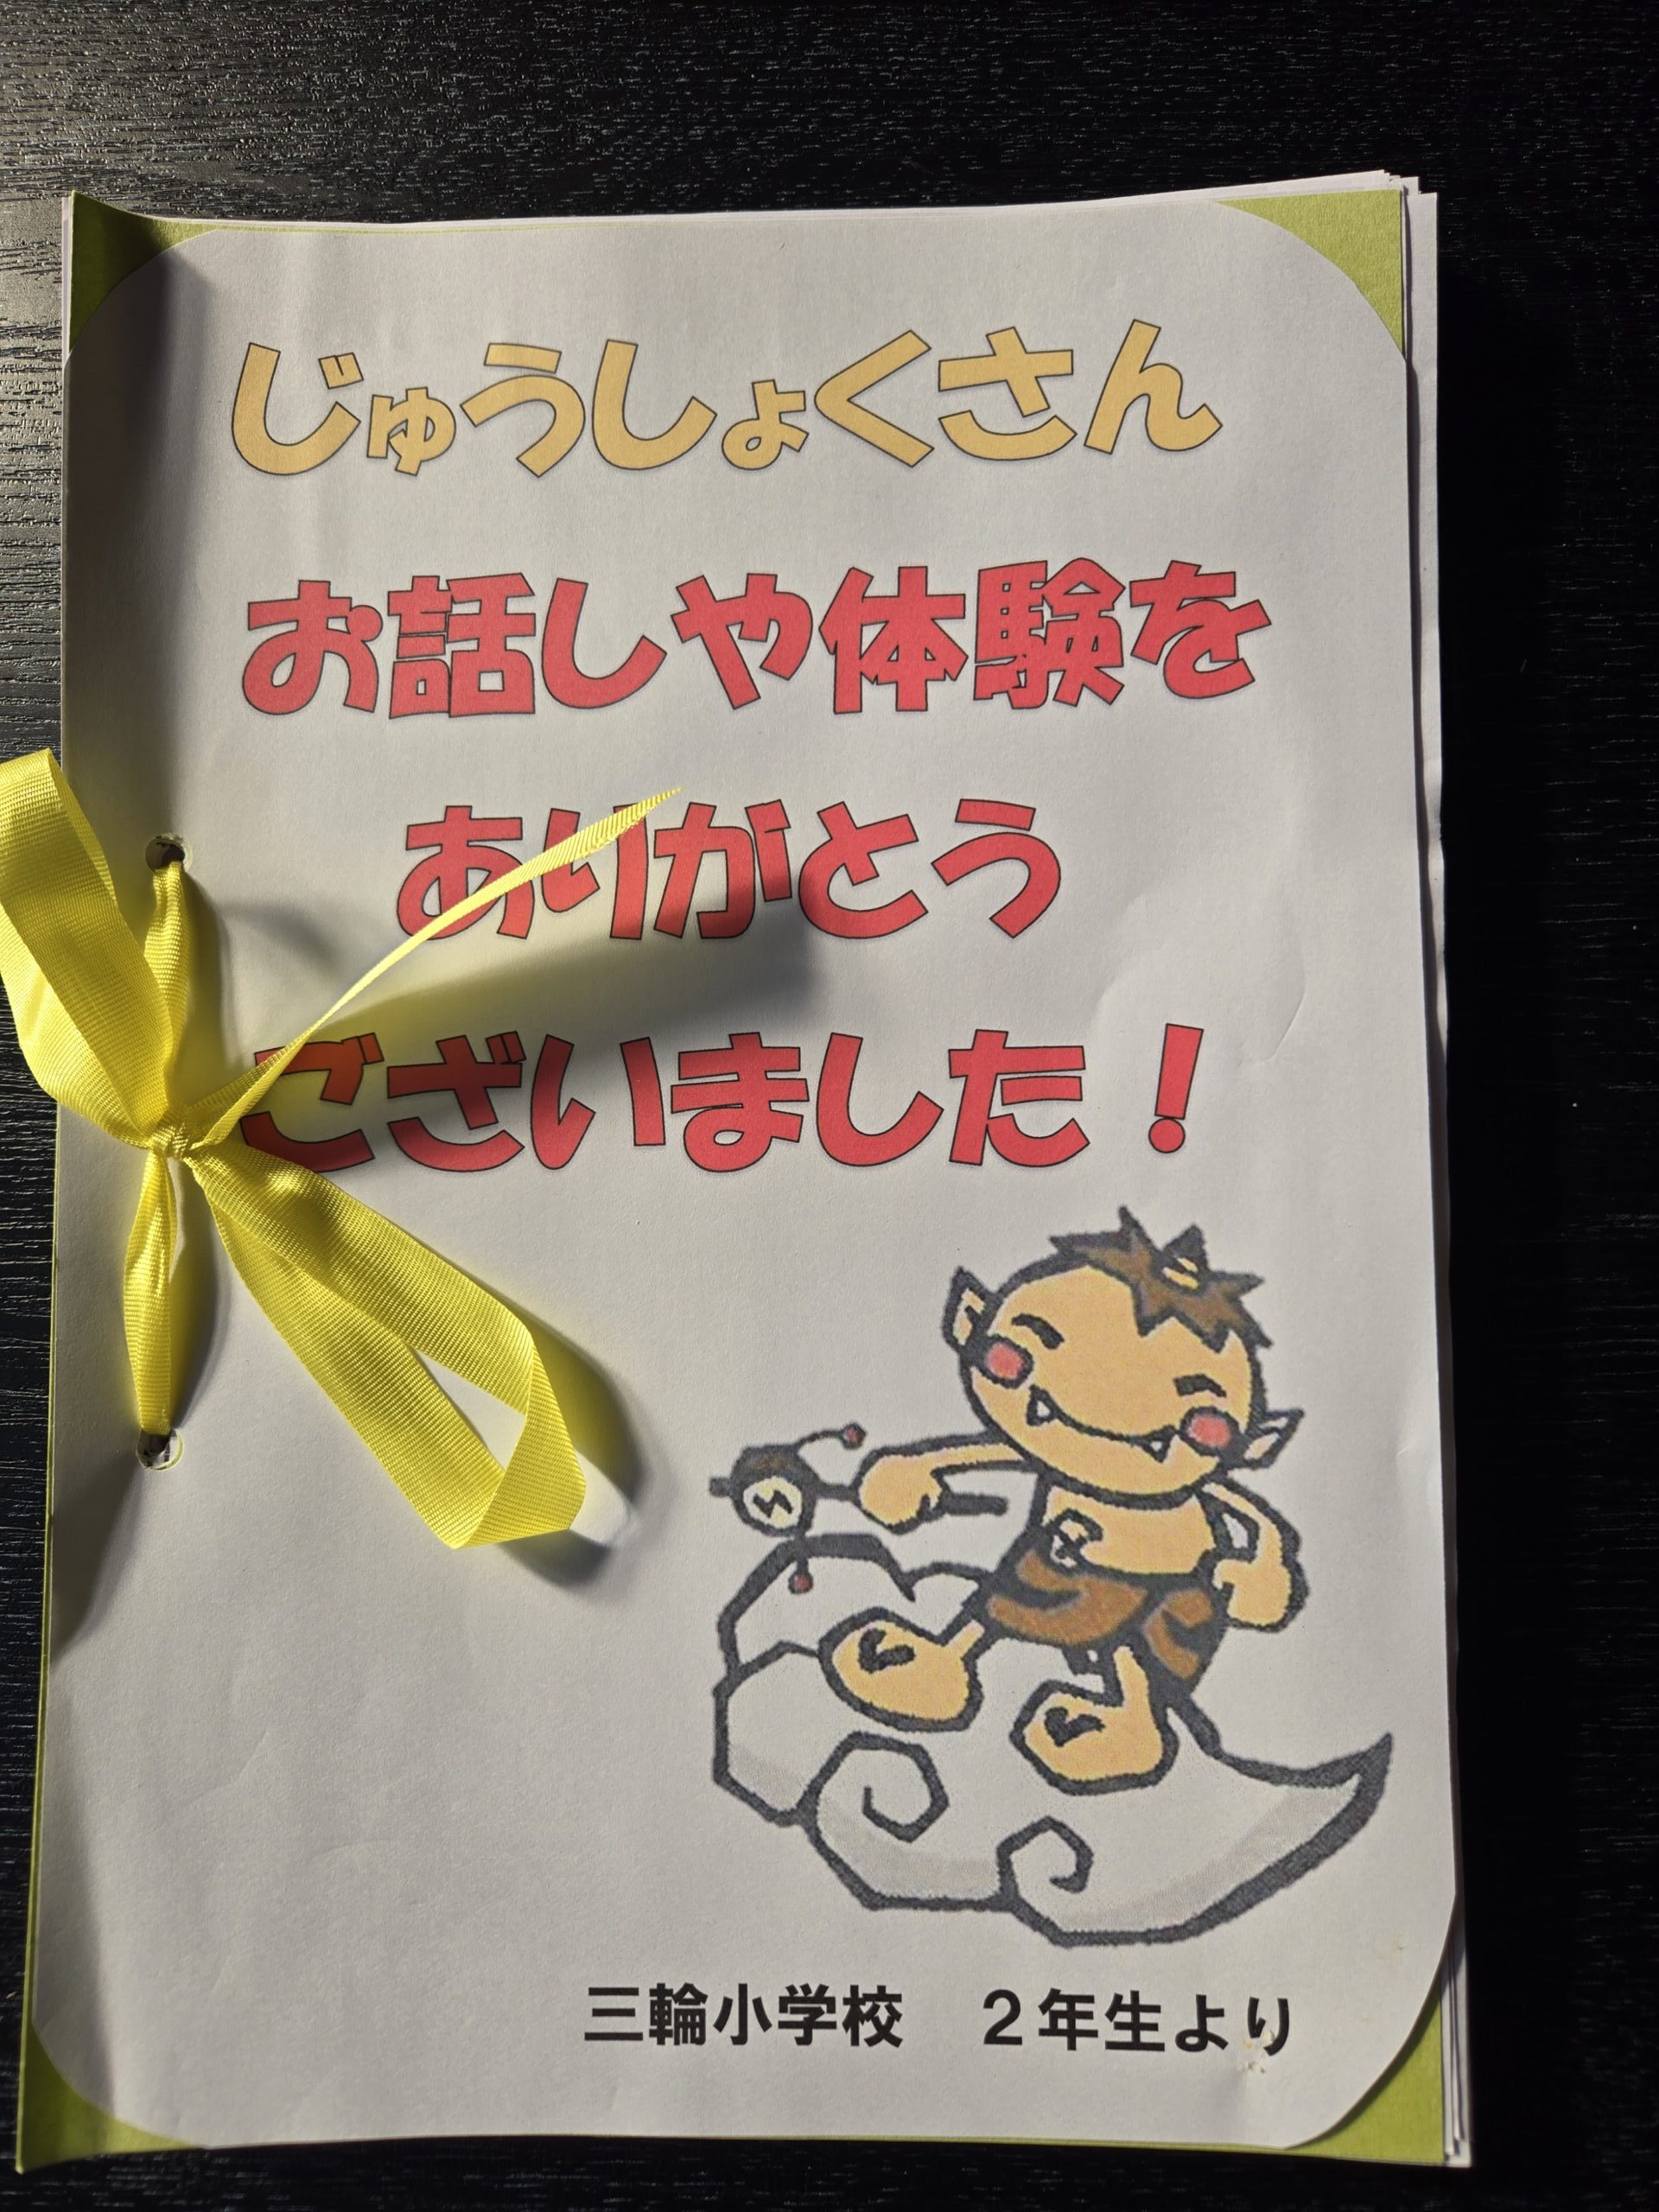 じゅうしょくさん
お話しや体験を
ありがとう
ございました！
三輪小学校　２年生より